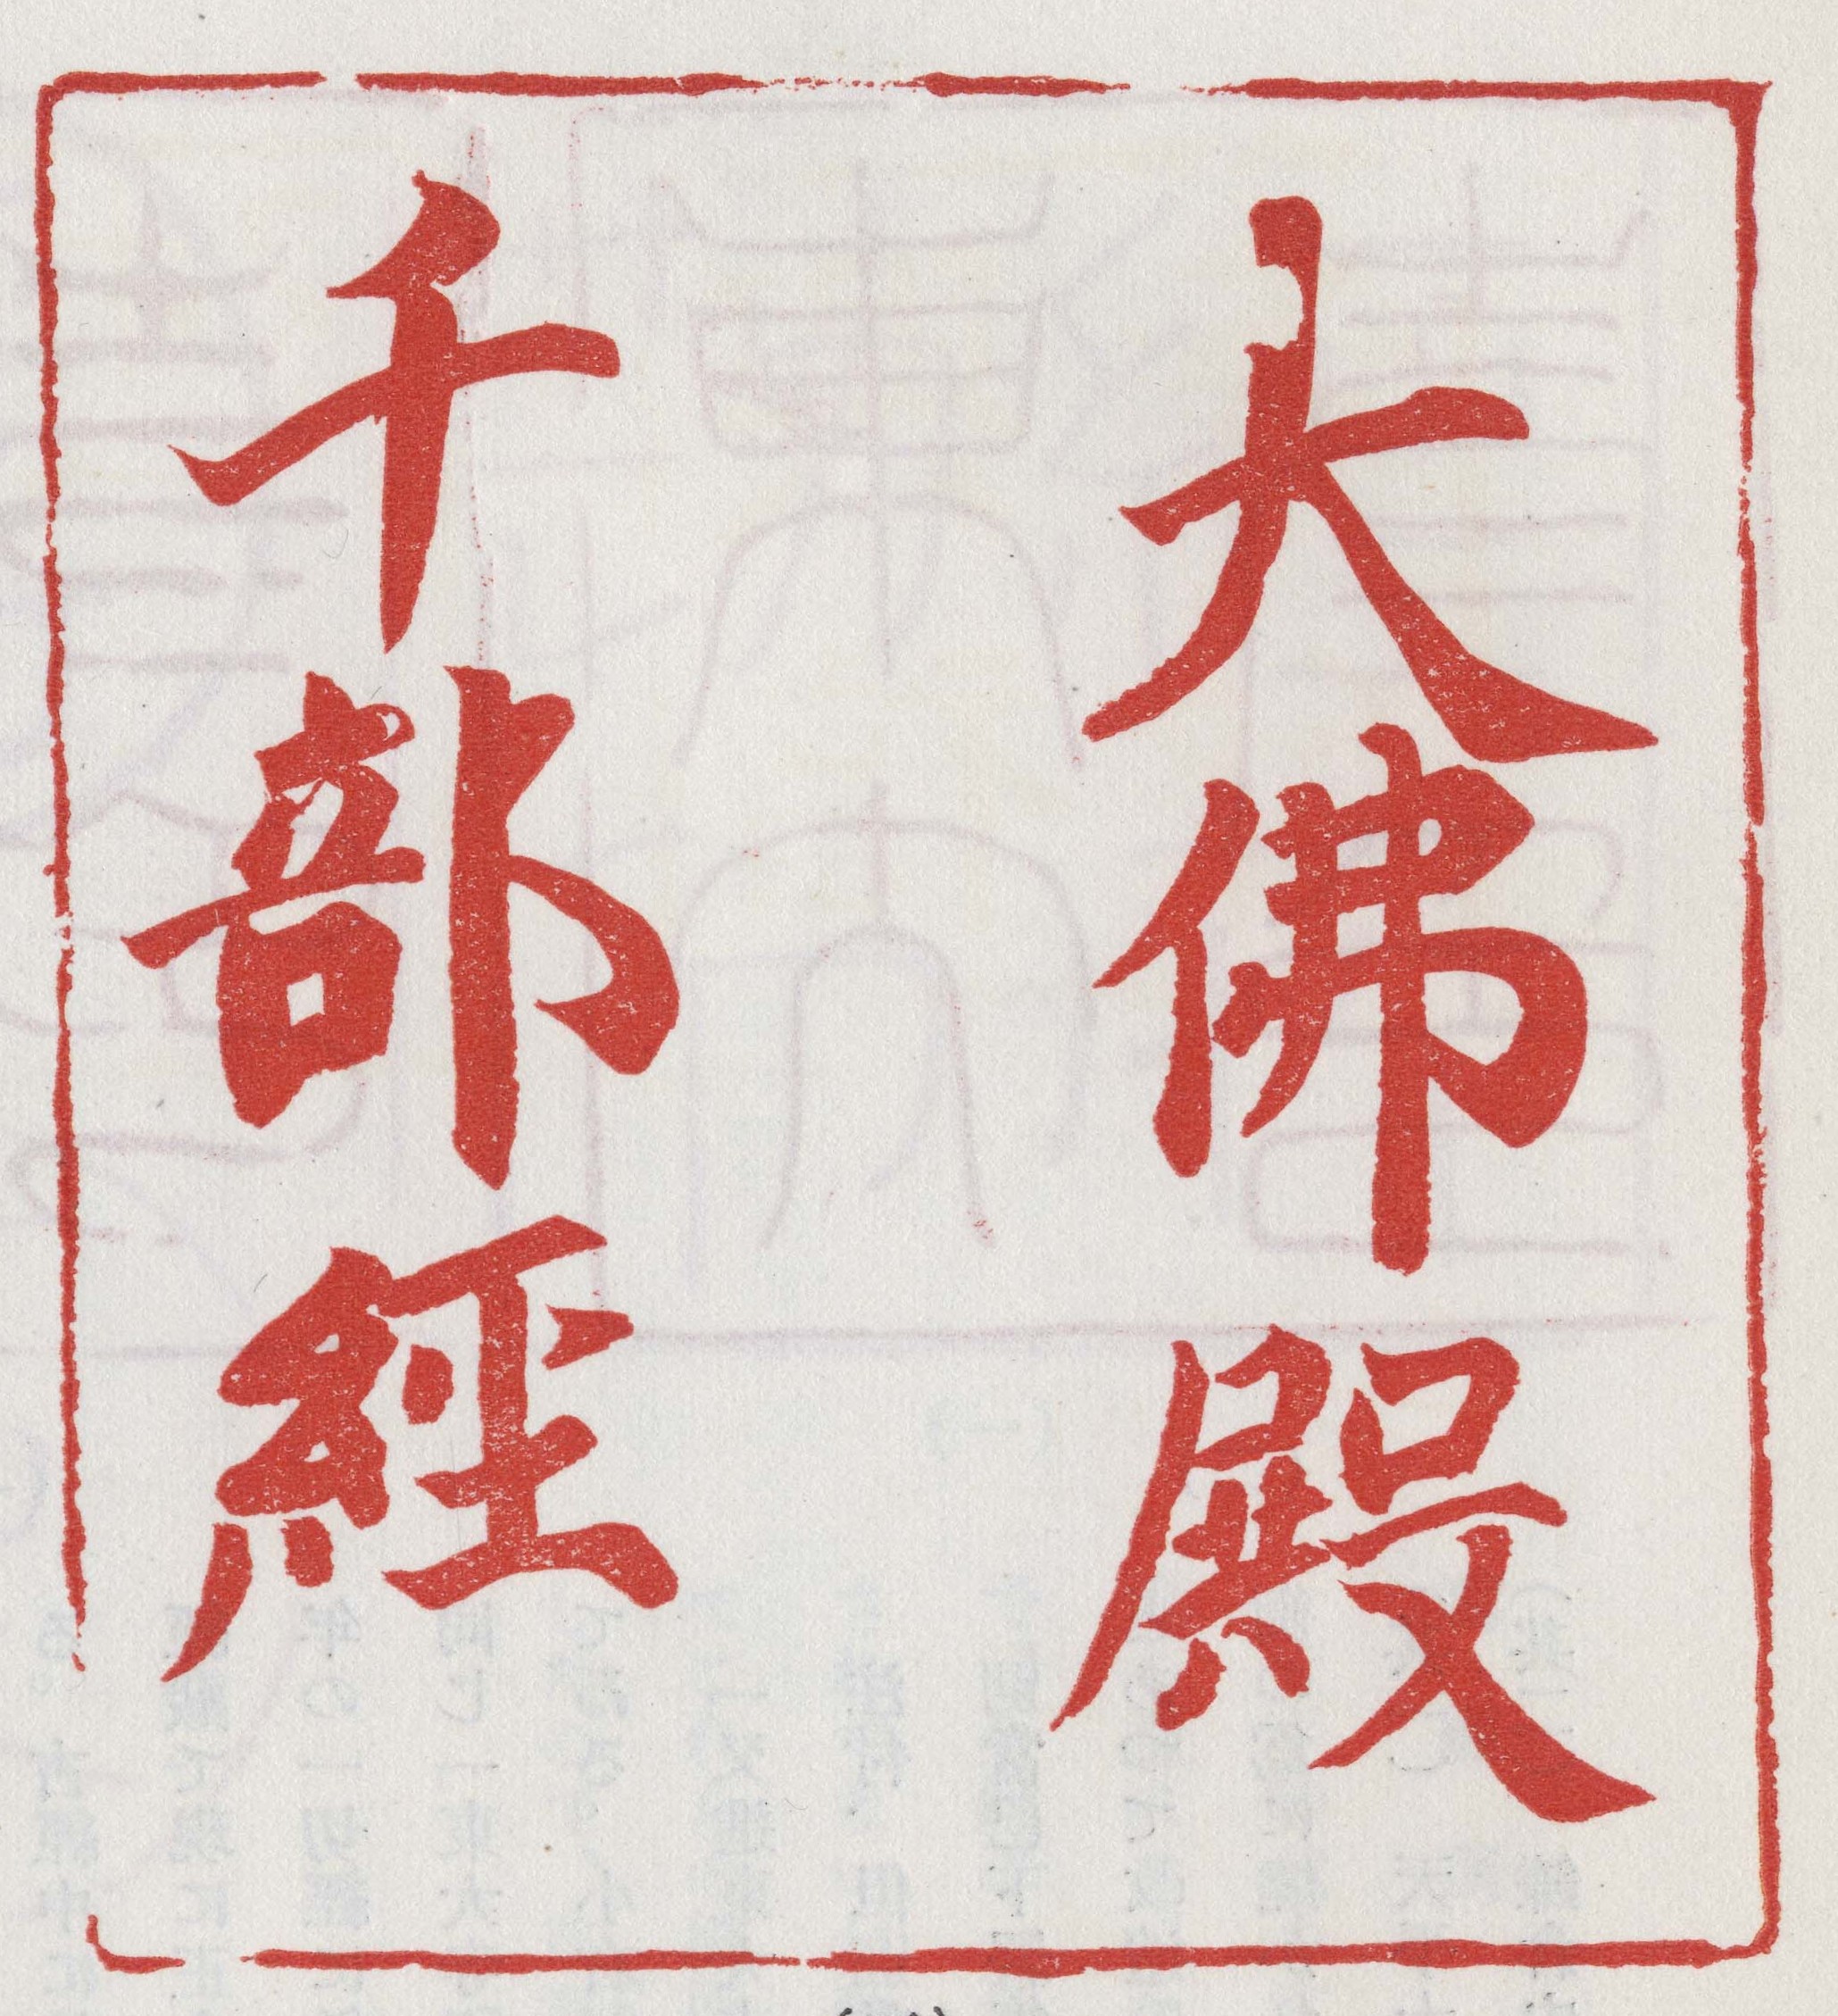 大佛殿
千部經